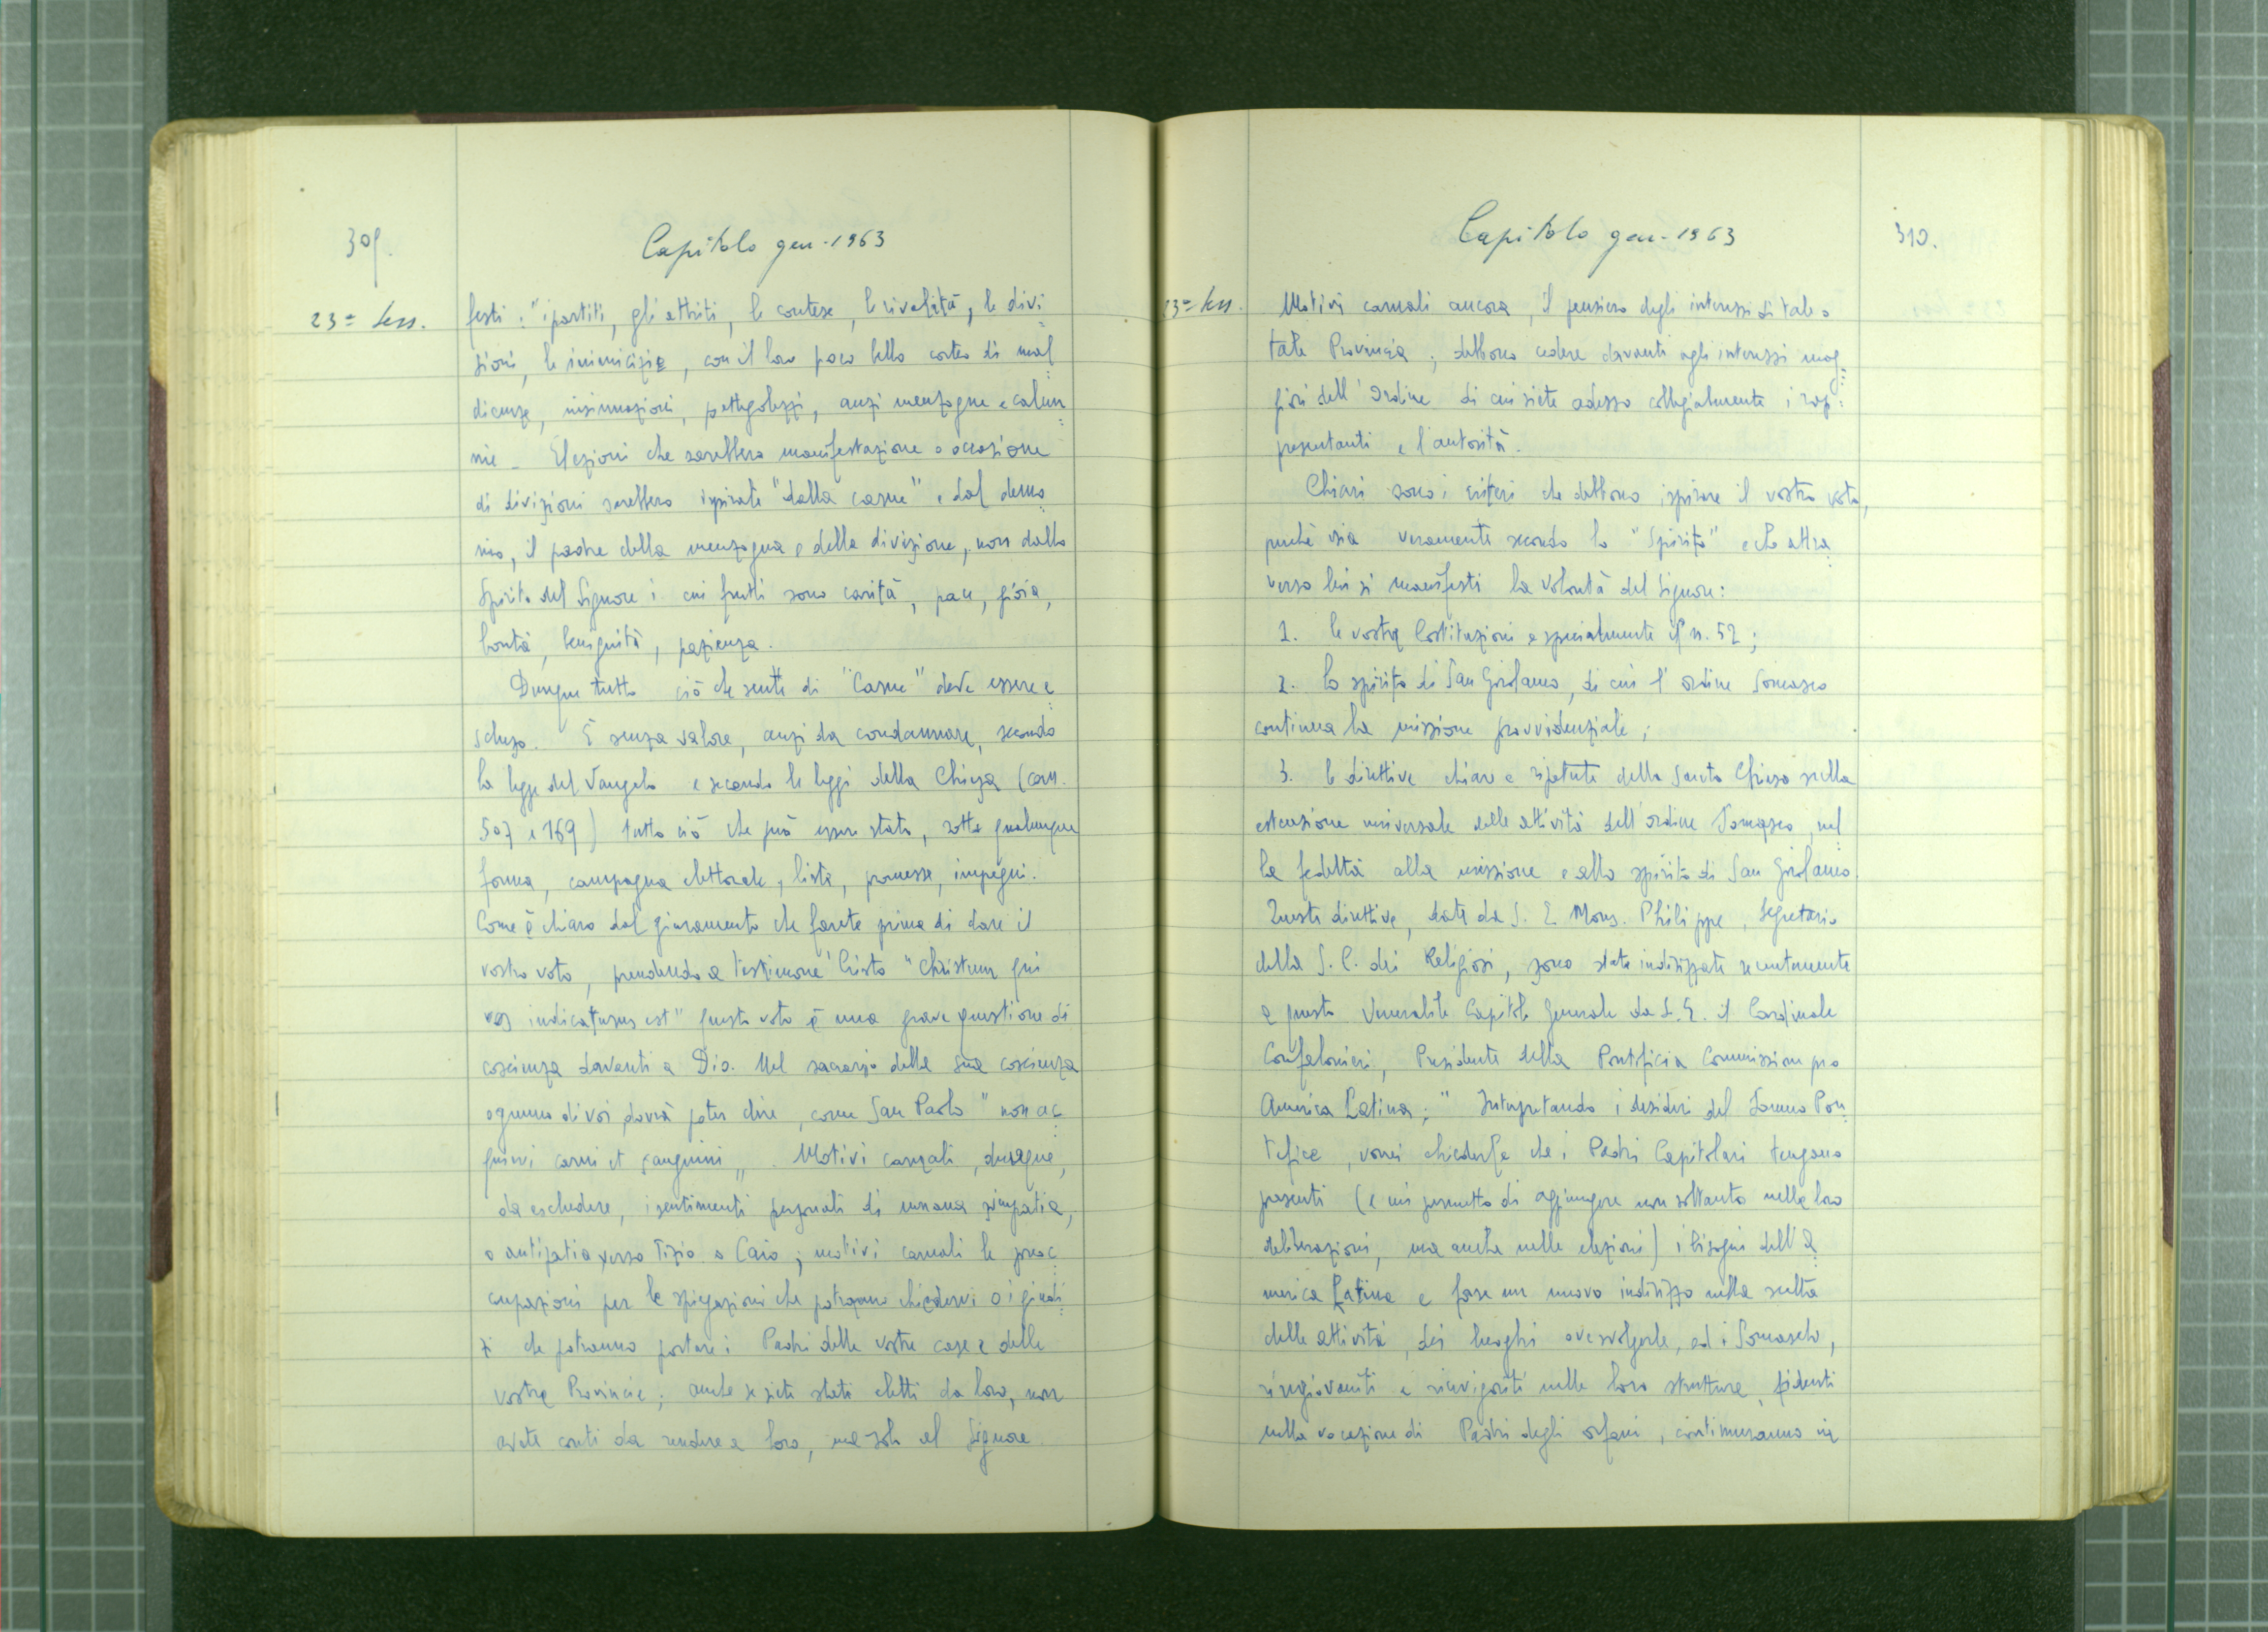 309.
Capitolo gen-1963
23ª Sess.
festi: "i partiti, gli attriti, le contese, le rivalità, le divi
sioni, le inimicizie, con il loro poco bello corteo di mal
dicenze, insinuazioni, pettegolezzi, anzi menzogne e calun
nie - Elezioni che sarebbero manifestazione o occasione
di divisioni sarebbero ispirate "dalla carne" e dal demo
nio, il padre della menzogna e della divisione, non dallo
Spirito del Signore i cui frutti sono carità, pace, gioia,
bontà, benignità, pazienza.
Dunque tutto ciò che sente di "Carne" deve essere e
scluso. È senza valore, anzi da condannare, secondo
la legge del Vangelo e secondo le leggi della Chiesa (can.
507 e 169) tutto ciò che può essere stato, sotto qualunque
forma, campagna elettorale, lista, promesse, impegni.
Come è chiaro dal giuramento che farete prima di dare il
vostro voto, prendendo a testimone Cristo "Christum qui
vos indicaturus est" questo voto è una grave questione di
coscienza davanti a Dio. Nel sacrario della sua coscienza
ognuno di voi dovrà poter dire, come San Paolo "non ac
quievi carni et sanguini". Motivi carnali, dunque,
da escludere, i sentimenti personali di umana simpatia,
o antipatia verso Tizio o Caio; motivi carnali le preoc
cupazioni per le spiegazioni che potranno chiedervi o i giudi
zi che potranno portare i Padri delle vostre case e delle
vostre Provincie; anche se siete stati eletti da loro, non
avete conti da rendere a loro, ma solo al Signore
Capitolo gen-1963
310.
23ª Sess.
Motivi carnali ancora, il pensiero degli interessi di tale o
tale Provincia; debbono cedere davanti agli interessi mag
giori dell'Ordine di cui siete adesso collegialmente i rap
presentanti e l'autorità.
Chiari sono i criteri che debbono ispirare il vostro voto,
perché sia veramente secondo lo "Spirito" e che attra
verso lui si manifesti la volontà del Signore:
1. le vostre Costituzioni e specialmente il n. 52;
2. lo spirito di San Girolamo, di cui l'ordine Somasco
continua la missione provvidenziale;
3. le direttive chiare e ripetute della Santa Chiesa sulla
estensione universale delle attività dell'ordine Somasco, nel
la fedeltà alla missione e allo spirito di San Girolamo.
Queste direttive, date da S. E Mons. Philippe, Segretario
della S. C. dei Religiosi, sono state indirizzate recentemente
a questo Venerabile Capitolo Generale da S. E. il Cardinale
Confalonieri, Presidente della Pontificia Commissione pro
America Latina; "Interpretando i desideri del Sommo Pon
tefice, vorrei chiederle che i Padri Capitolari tengano
presenti (e mi permetto di aggiungere non soltanto nelle loro
deliberazioni, ma anche nelle elezioni) i bisogni dell'A
merica Latina e forse un nuovo indirizzo nella scelta
delle attività, dei luoghi ove svolgerle, ed i Somaschi,
ringiovaniti e rinvigoriti nelle loro strutture, fidenti
nella vocazione di Padri degli orfani, continueranno in